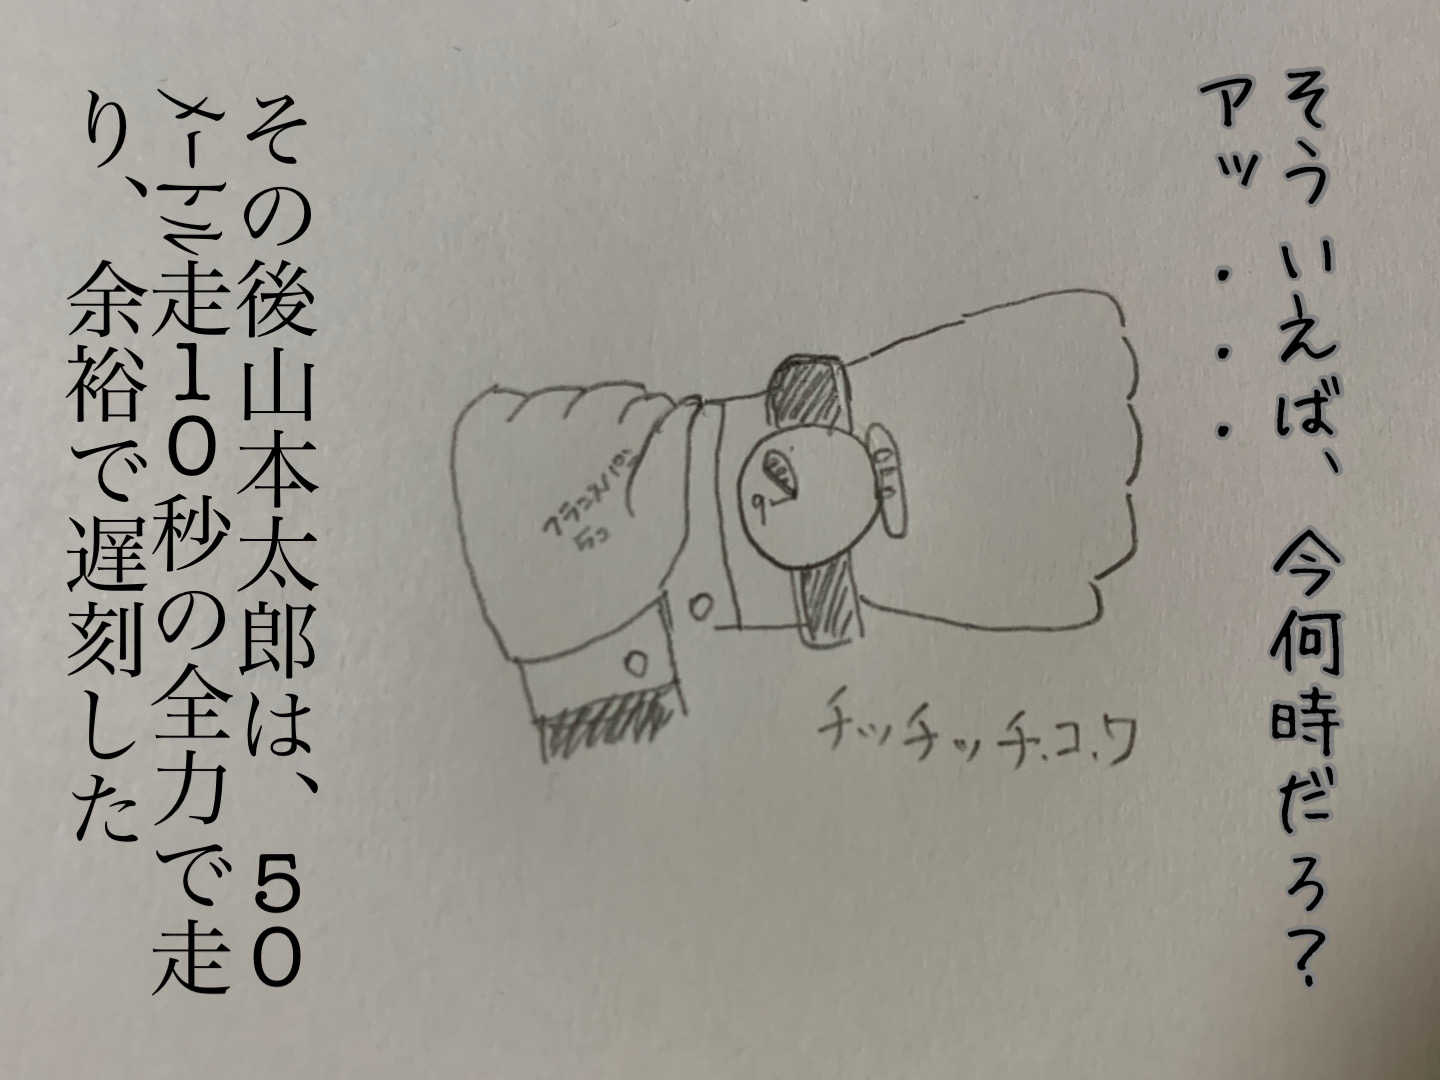 そういえば、今何時だろ?
アッ・・・
フランスパン
5コ
9
チッチッチ.コ.ワ
その後山本太郎は、50
メートル走10秒の全力で走
り、余裕で遅刻した